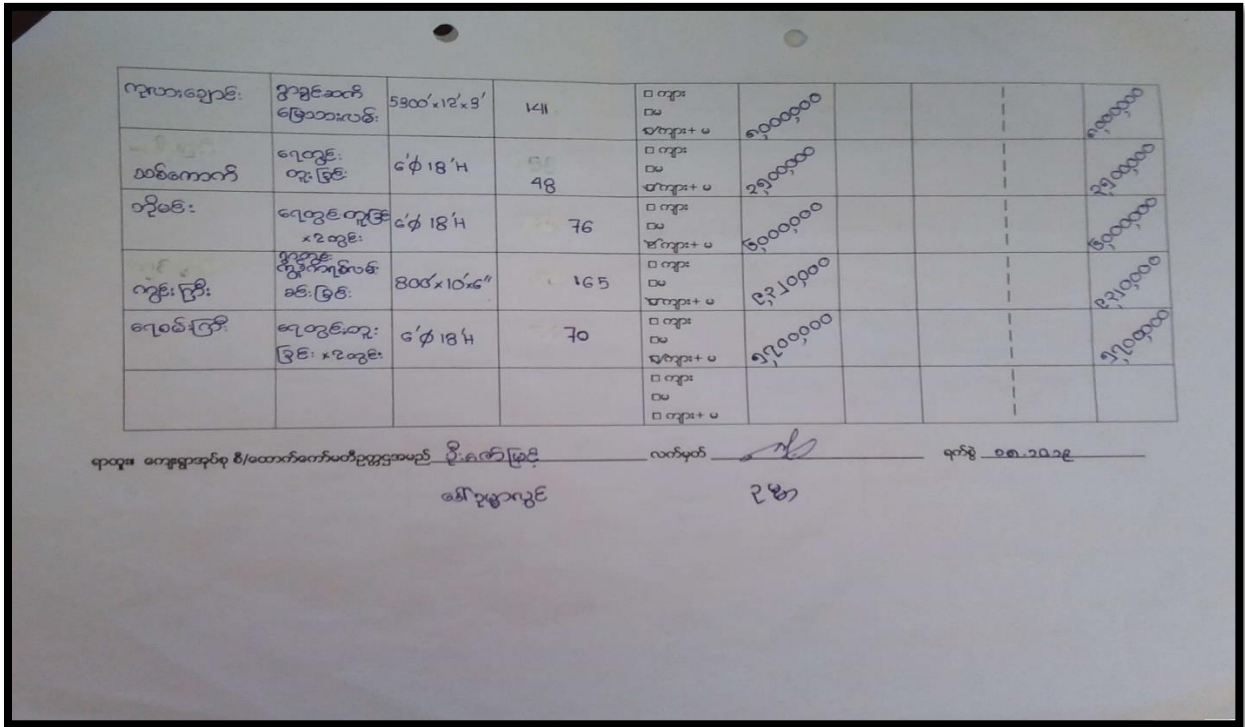 ကုလားချောင်း
ရွာချင်းဆက်
မြေသားလမ်း
5900'×12'×3'
141
□ ကျား
□မ
ကျား+ မ
၈,၀၀၀,၀၀၀
၈,၀၀၀,၀၀၀
သစ်ကောက်
ရေတွင်း
တူးခြင်း
6'φ 18'H
48
□ ကျား
□မ
ကျား+ မ
၂,၅၀၀,၀၀၀
၂,၅၀၀,၀၀၀
ရေတွင်းတူးခြင်း
×2တွင်း
6'φ 18'H
76
□ ကျား
□မ
ကျား+ မ
၆,၀၀၀,၀၀၀
၆,၀၀၀,၀၀၀
ကျွင်းကြီး
ရွာတွင်း
ကွန်ကရစ်လမ်း
ခင်းခြင်း
800'×10'×6"
165
□ ကျား
□မ
ကျား+ မ
ရေဝမ်းကြီး
ရေတွင်းတူး
ခြင်း ×2တွင်း
6'φ 18'H
70
□ ကျား
□မ
ကျား+ မ
၅,၇၀၀,၀၀၀
၅,၇၀၀,၀၀၀
□ ကျား
□မ
□ ကျား+ မ
ရာထူး၊ ကျေးရွာအုပ်စု စီ/ထောက်ကော်မတီဥက္ကဋ္ဌအမည် ဦးဇော်မြင့် လက်မှတ် ရက်စွဲ
ဒေါ်ဥမ္မာလွင် ဥမ္မာ